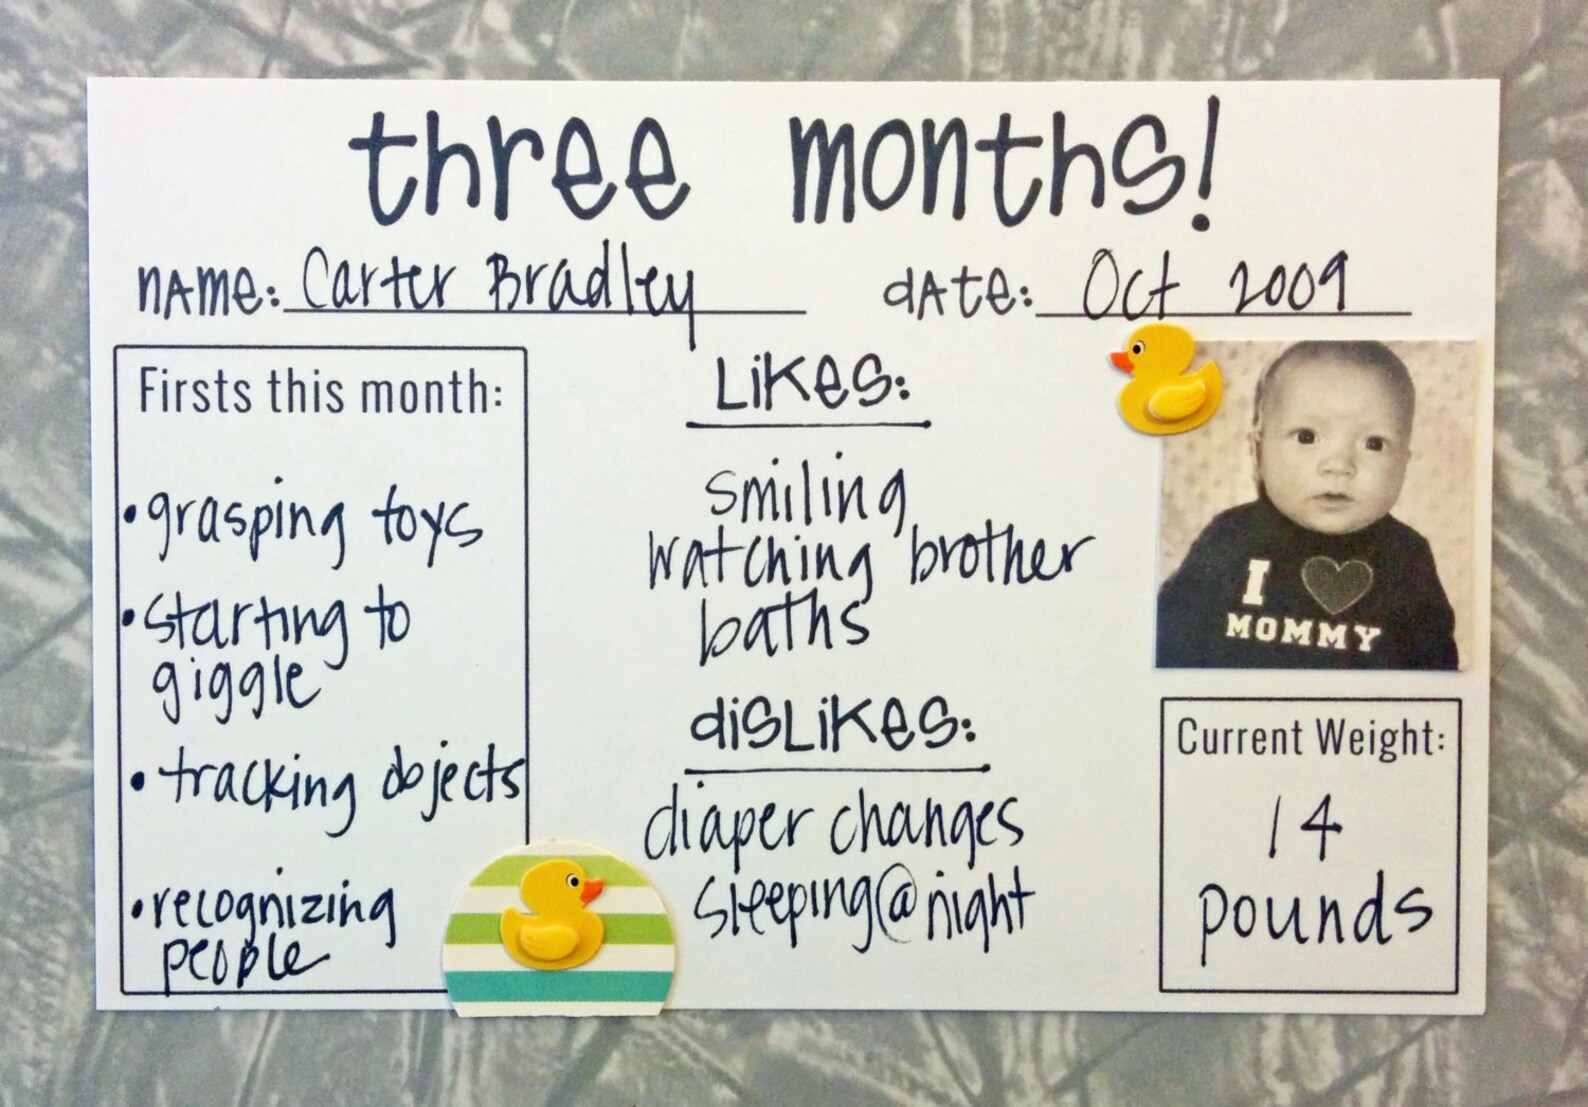 three months!
name: Carter Bradley
date: Oct 2009
Firsts this month:
• grasping toys
• starting to
giggle
• tracking objects
• recognizing
people
Likes:
smiling
watching brother
baths
disLikes:
diaper changes
sleeping @ night
I
MOMMY
Current Weight:
14
pounds